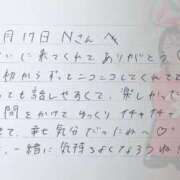 月17日 Nさんへ
いに来てくれてありがとう♡
初からずっとニコニコしてくれて
っても話しやすくて、楽しかった
間をかけてゆっくりイチャイチャ
て、幸せ気分だったね〜♡
、一緒に気持ちよくなろうね！